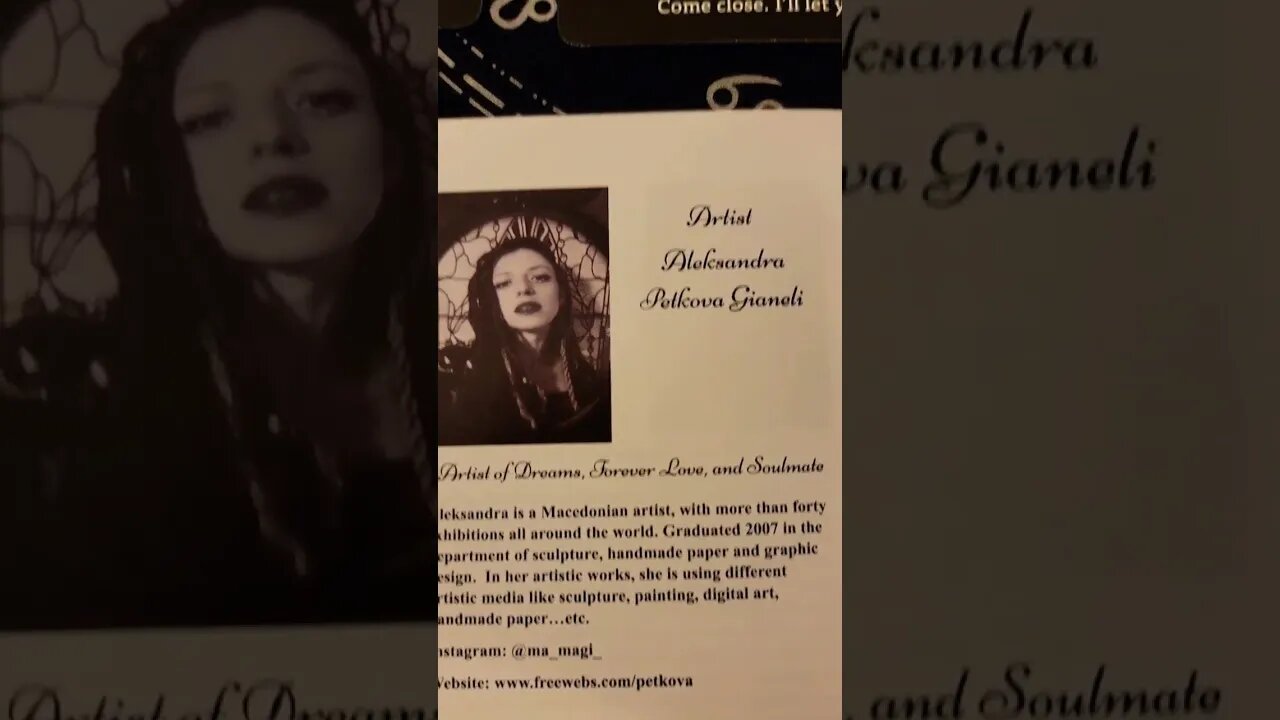 Come close. I'll let
Artist
Aleksandra
Petkova Gianeli
Artist of Dreams, Forever Love, and Soulmate
leksandra is a Macedonian artist, with more than forty
xhibitions all around the world. Graduated 2007 in the
epartment of sculpture, handmade paper and graphic
esign. In her artistic works, she is using different
rtistic media like sculpture, painting, digital art,
andmade paper…etc.
nstagram: @ma_magi_
Website: www.freewebs.com/petkova
ksandra
va Gianeli
Artist of Dreams
and Soulmate